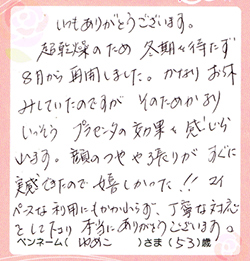 いつもありがとうございます。
超乾燥のため 冬期を待たず
8月から再開しました。かなりお休
みしていたのですが そのためかより
いっそう プラセンタの効果を感じら
れます。顔のつや々張りが すぐに
実感できたので嬉しかった!! マイ
ペースな利用にもかかわらず、丁寧な対応
をして下さり 本当にありがとうございます。
ペンネーム( ゆめこ )さま (53)歳